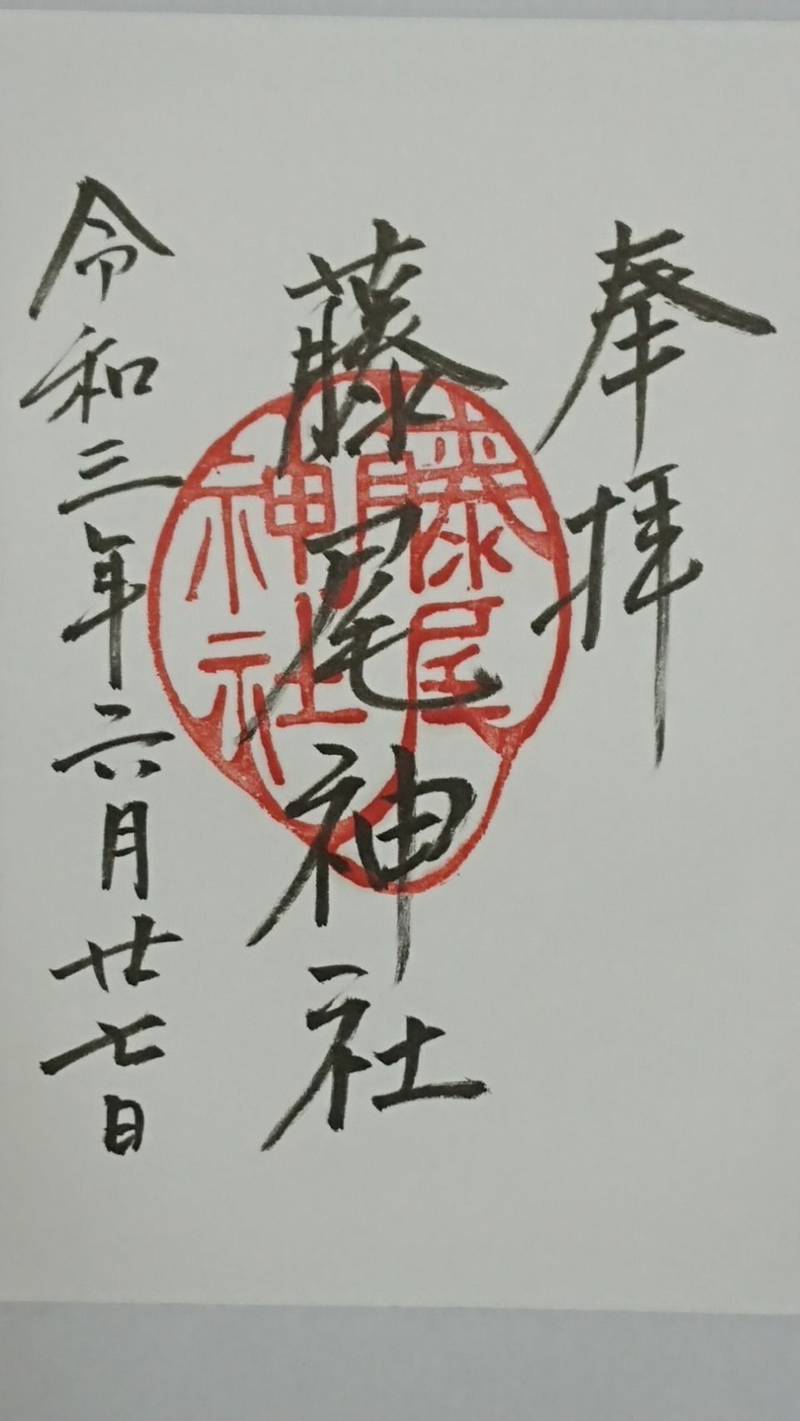 奉拝
藤尾神社
藤尾
神社
令和三年六月廿七日